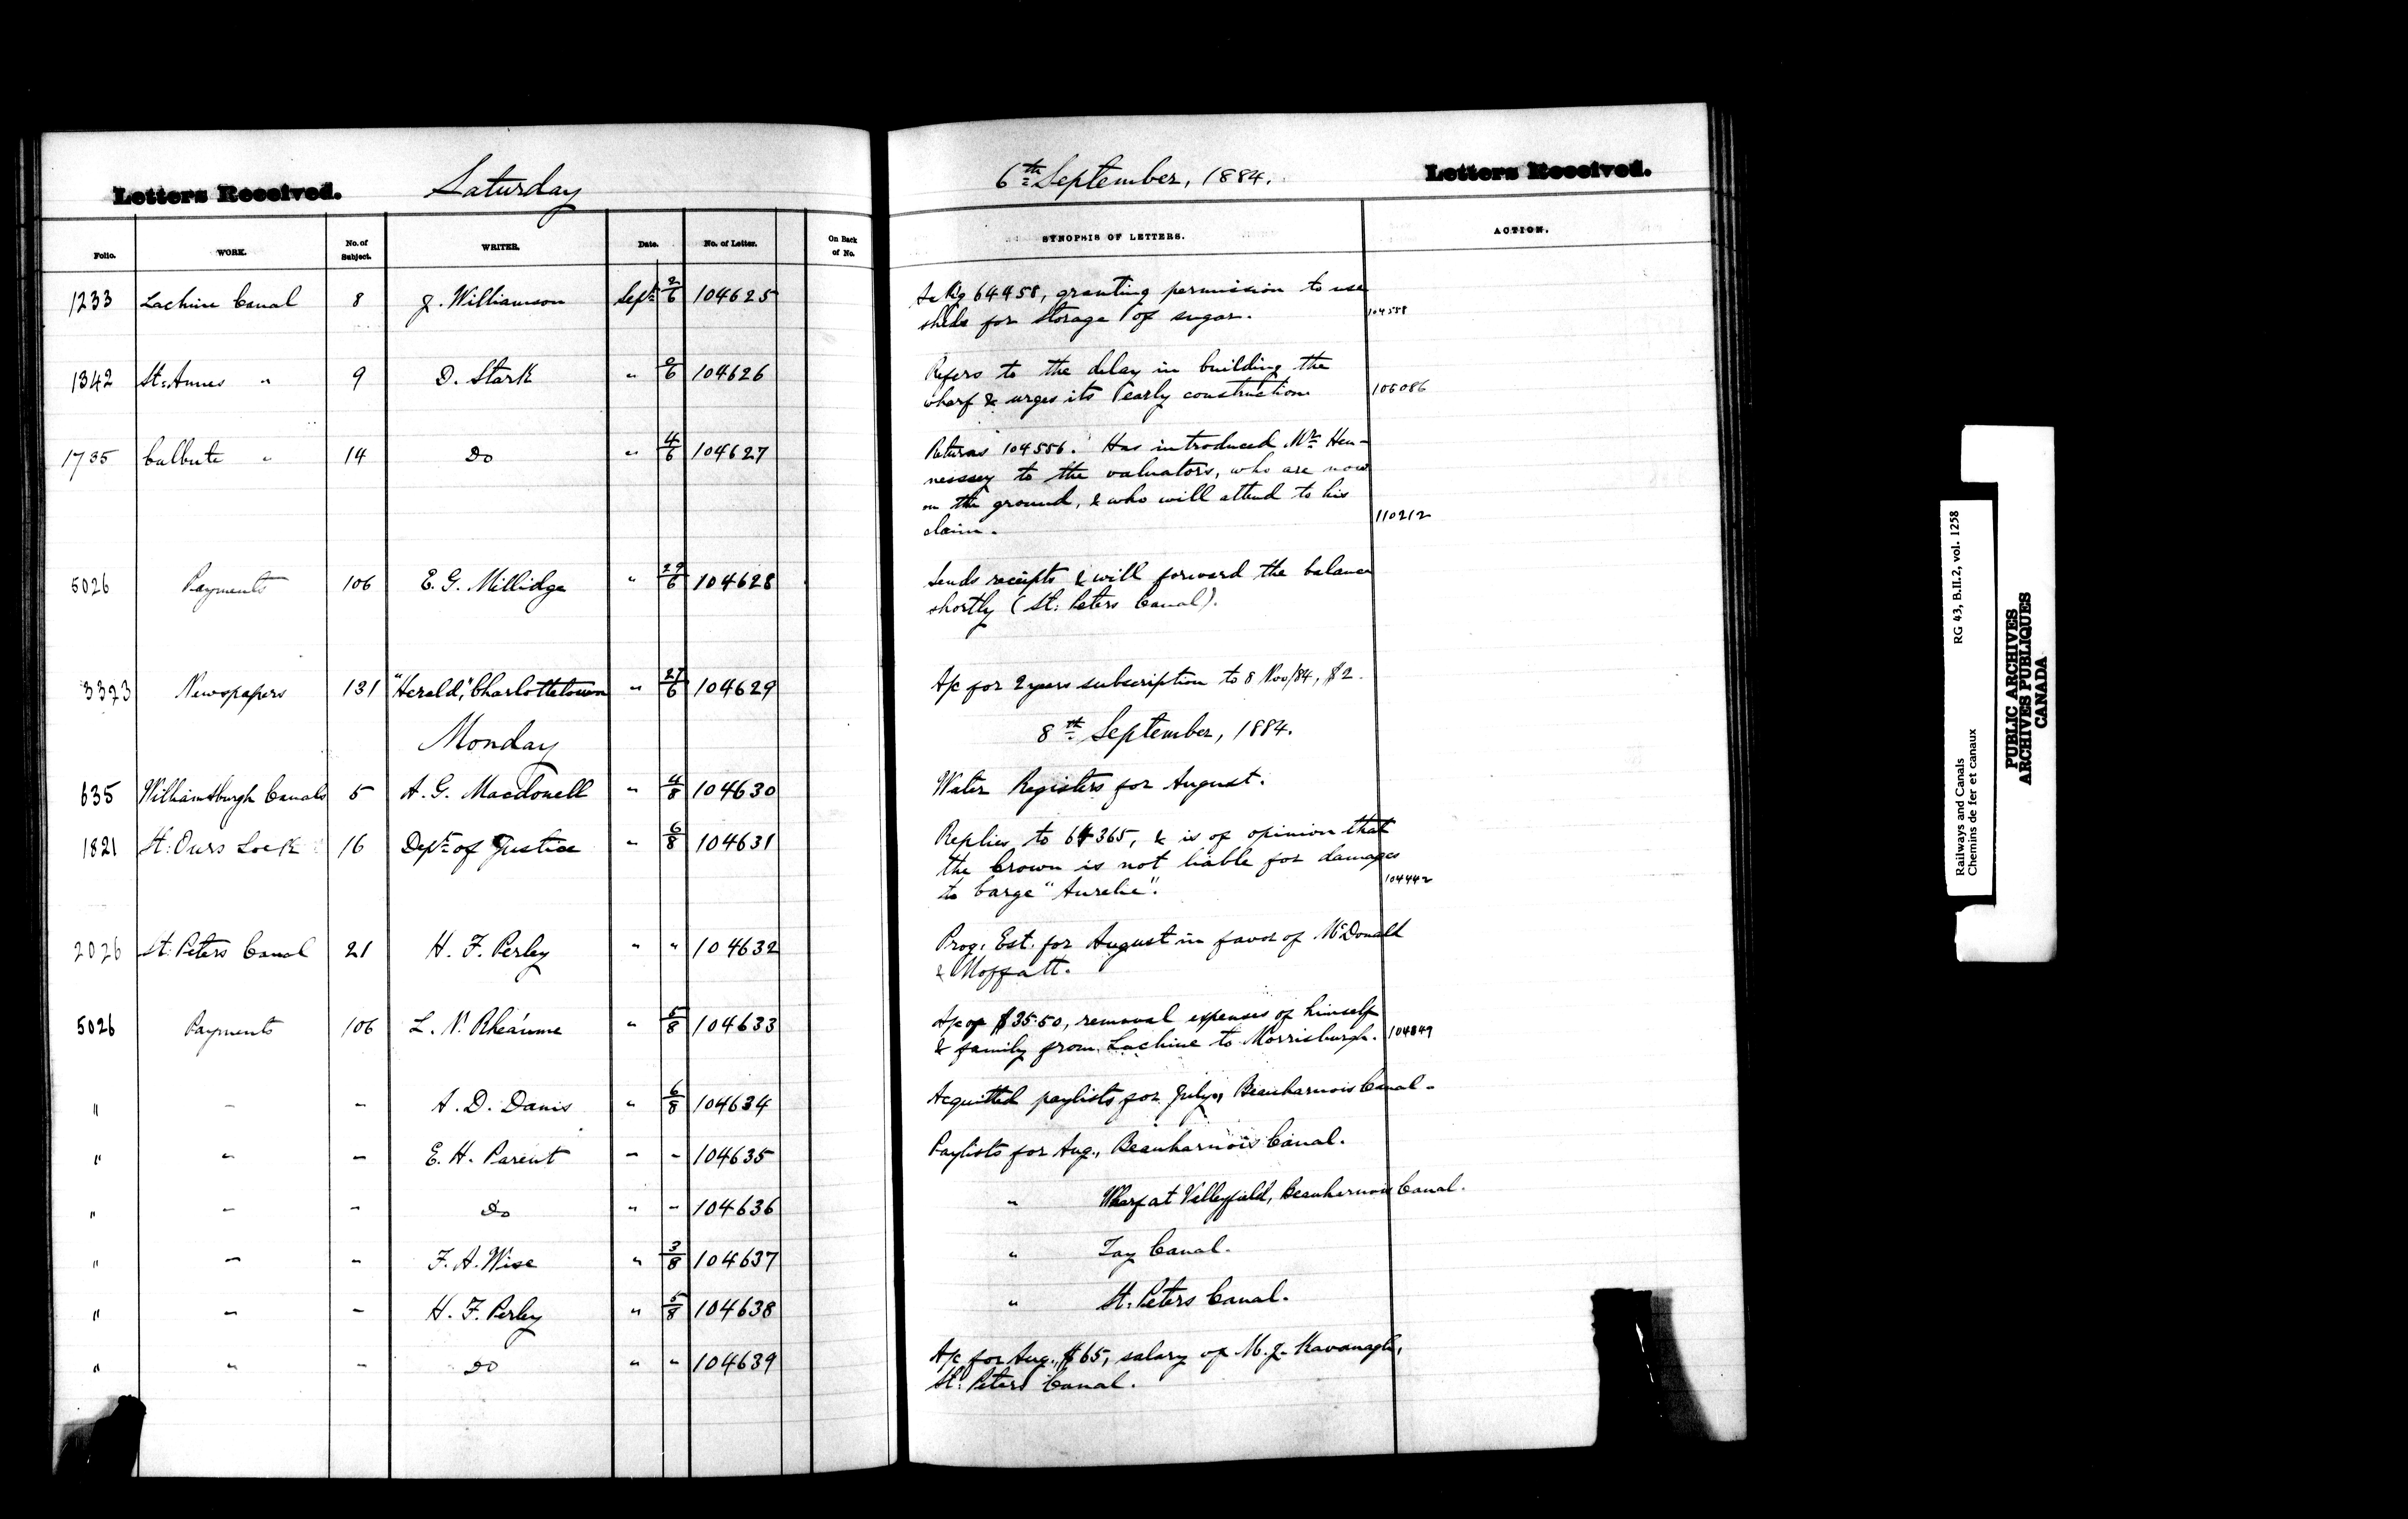 Letters Received. Saturday 6th September, 1884. Letters Received.
Folio. WORK. No. of Subject. WRITER. Date. No. of Letter. On Back of No. SYNOPSIS OF LETTERS. ACTION.
1233 Lachine Canal 8 J. Williamson Sept 2/6 104625 64458, granting permission to use
sheds for storage of sugar. 104558
1342 St: Annes " 9 D. Stark " 2/6 104626 Refers to the delay in building the
wharf & urges its early construction 106086
1735 Culbute " 14 Do " 4/6 104627 Returns 104556. Has introduced Mr. Hen-
nessey to the valuators, who are now
on the ground, & who will attend to his
claim. 110212
5026 Payments 106 E. G. Millidge " 29/6 104628 Sends receipts & will forward the balance
shortly (St: Peters Canal).
3373 Newspapers 131 "Herald," Charlottetown " 27/6 104629 A/c for 2 years subscription to 8 Nov/84, $2.
Monday 8th September, 1884.
635 Williamsburgh Canals 5 A. G. Macdonell " 4/8 104630 Water Registers for August.
1821 St: Ours Lock 16 Dept of Justice " 6/8 104631 Replies to 64365, & is of opinion that
the Crown is not liable for damages
to barge "Aurelie". 104442
2026 St: Peters Canal 21 H. F. Perley " " 104632 Prog. Est. for August in favor of McDonald
& Moffatt.
5026 Payments 106 L. N. Rheáume " 5/8 104633 A/c of $35.50, removal expenses of himself
& family from Lachine to Morrisburgh. 104849
" " " A. D. Danis " 6/8 104634 Acquitted paylists for July, Beauharnois Canal.
" " " E. H. Parent " " 104635 Paylists for Aug., Beauharnois Canal.
" " " Do " " 104636 " Wharf at Valleyfield, Beauharnois Canal.
" " " F. A. Wise " 3/8 104637 " Tay Canal.
" " " H. F. Perley " 5/8 104638 " St: Peters Canal.
" " " Do " " 104639 A/c for Aug., $65, salary of M. J. Kavanagh,
St: Peters Canal.
Railways and Canals RG 43, B.II.2, vol. 1258
Chemins de fer et canaux
PUBLIC ARCHIVES
ARCHIVES PUBLIQUES
CANADA